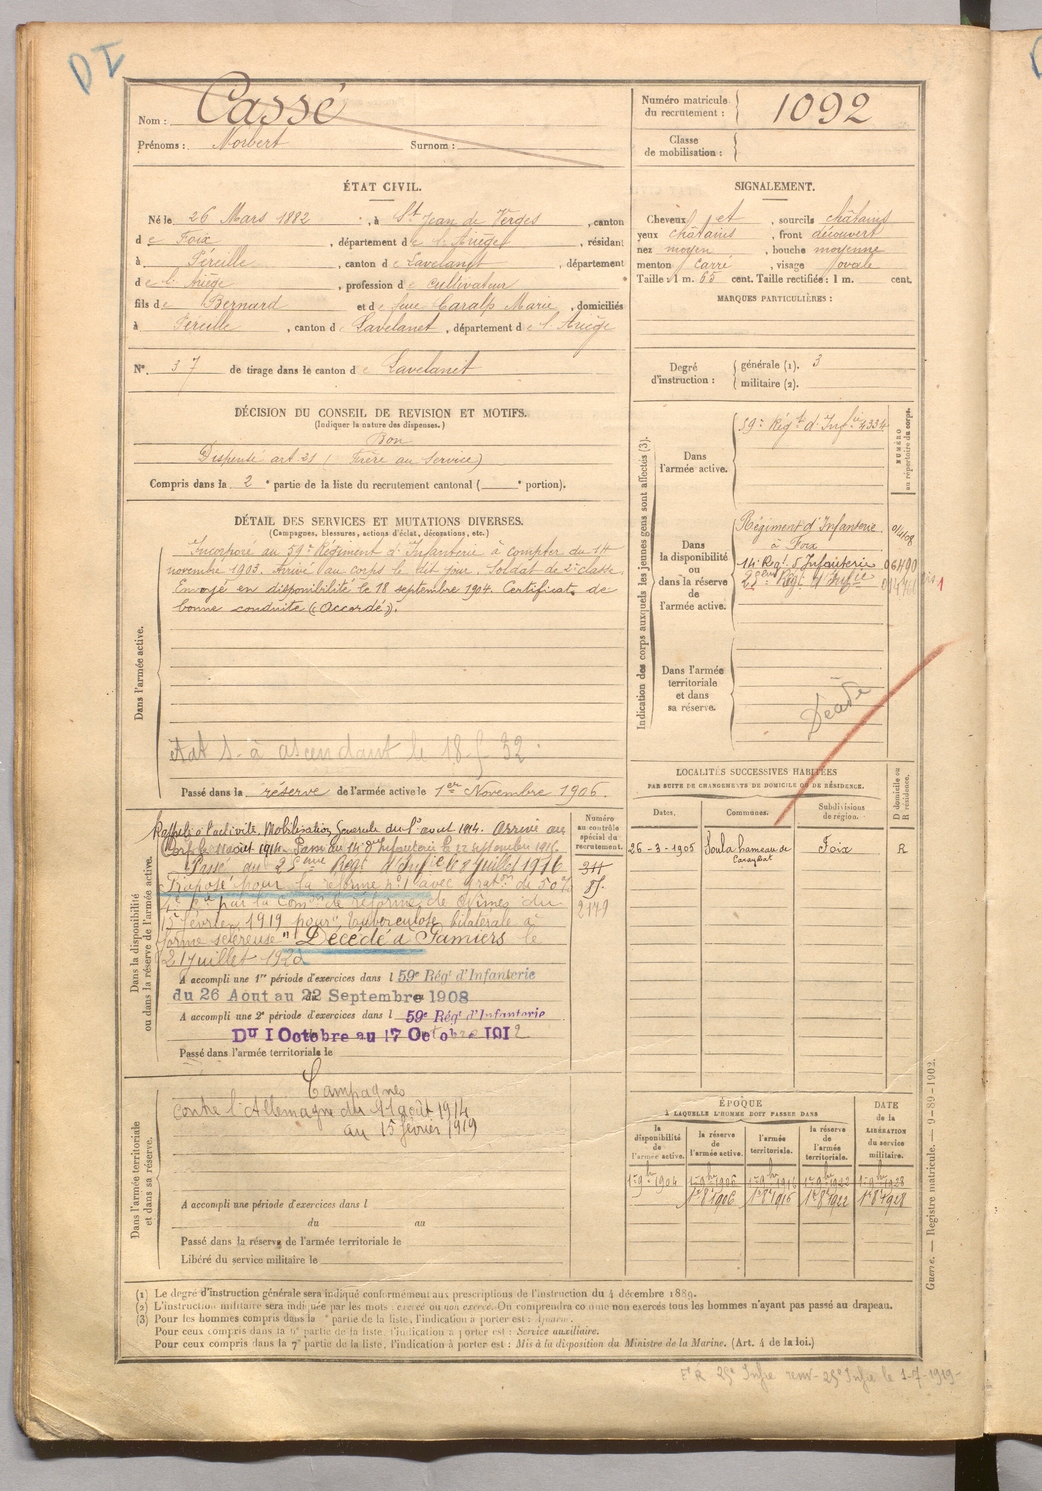 DI
Nom : Cassé
Prénoms : Norbert Surnom :
Numéro matricule du recrutement : 1092
Classe de mobilisation :
ÉTAT CIVIL.
Né le 26 Mars 1882, à St Jean de Verges, canton
de Foix, département de l'Ariège, résidant
à Péreille, canton de Lavelanet, département
de l'Ariège, profession de cultivateur
fils de Bernard et de feue Caralp Marie, domiciliés
à Péreille, canton de Lavelanet, département de l'Ariège
N° 37 de tirage dans le canton de Lavelanet
SIGNALEMENT.
Cheveux jet, sourcils châtains
yeux châtains, front découvert
nez moyen, bouche moyenne
menton carré, visage ovale
Taille : 1 m. 65 cent. Taille rectifiée : 1 m. cent.
MARQUES PARTICULIÈRES :
Degré d'instruction : générale (1). 3
militaire (2).
DÉCISION DU CONSEIL DE REVISION ET MOTIFS.
(Indiquer la nature des dispenses.)
Bon
Dispensé art 21 (Frère au service)
Compris dans la 2e partie de la liste du recrutement cantonal ( e portion).
DÉTAIL DES SERVICES ET MUTATIONS DIVERSES.
(Campagnes, blessures, actions d'éclat, décorations, etc.)
Dans l'armée active.
Incorporé au 59e Régiment d'Infanterie à compter du 14
novembre 1903. Arrivé au corps le dit jour. Soldat de 2e classe.
Envoyé en disponibilité le 18 septembre 1904. Certificat de
bonne conduite (Accordé).
état S. à ascendant le 18-5-32
Passé dans la réserve de l'armée active le 1er Novembre 1906.
Indication des corps auxquels les jeunes gens sont affectés (3).
NUMÉRO au répertoire du corps.
Dans l'armée active.
59e Régt d'Infie 4334
Dans la disponibilité ou dans la réserve de l'armée active.
Régiment d'Infanterie
à Foix
14e Régt d'Infanterie 06490
25ème Régt d'Infie
Dans l'armée territoriale et dans sa réserve.
Décédé
LOCALITÉS SUCCESSIVES HABITÉES
PAR SUITE DE CHANGEMENTS DE DOMICILE OU DE RÉSIDENCE.
Dates. Communes. Subdivisions de région. D domicile ou R résidence.
26-3-1905 Soula hameau de Caraybat Foix R
Dans la disponibilité ou dans la réserve de l'armée active.
Numéro au contrôle spécial du recrutement.
311
85.
2179
Rappelé à l'activité. Mobilisation Générale du 1er aout 1914. Arrivé au
Corps le 11 aout 1914. Passé au 14e d'Infanterie le 22 septembre 1916.
Passé au 25ème Régt d'Infie le 8 juillet 1916
Proposé pour la réforme n°1 avec graton de 50%
par la Comon de réforme de Nîmes du
15 février 1919 pour "tuberculose bilatérale à
forme scléreuse" Décédé à Pamiers le
21 juillet 1922
A accompli une 1re période d'exercices dans l 59e Régt d'Infanterie
du 26 Aout au 22 Septembre 1908
A accompli une 2e période d'exercices dans l 59e Régt d'Infanterie
Du 1 Octobre au 17 Octobre 1912
Passé dans l'armée territoriale le
Dans l'armée territoriale et dans sa réserve.
Campagnes
contre l'Allemagne du 11 août 1914
au 15 février 1919
A accompli une période d'exercices dans l
du au
Passé dans la réserve de l'armée territoriale le
Libéré du service militaire le
ÉPOQUE
À LAQUELLE L'HOMME DOIT PASSER DANS
DATE de la LIBÉRATION du service militaire.
la disponibilité de l'armée active. la réserve de l'armée active. l'armée territoriale. la réserve de l'armée territoriale.
1er 9bre 1904 1er 9bre 1906 1er 9bre 1916 1er 9bre 1922 1er 9bre 1928
1er 8bre 1906 1er 8bre 1916 1er 8bre 1922 1er 8bre 1928
Guerre. — Registre matricule. — 9-89-1902.
(1) Le degré d'instruction générale sera indiqué conformément aux prescriptions de l'instruction du 4 décembre 1889.
(2) L'instruction militaire sera indiquée par les mots : exercé ou non exercé. On comprendra comme non exercés tous les hommes n'ayant pas passé au drapeau.
(3) Pour les hommes compris dans la e partie de la liste, l'indication à porter est :
Pour ceux compris dans la 6e partie de la liste, l'indication à porter est : Service auxiliaire.
Pour ceux compris dans la 7e partie de la liste, l'indication à porter est : Mis à la disposition du Ministre de la Marine. (Art. 4 de la loi.)
25e Infie le 1-7-1919